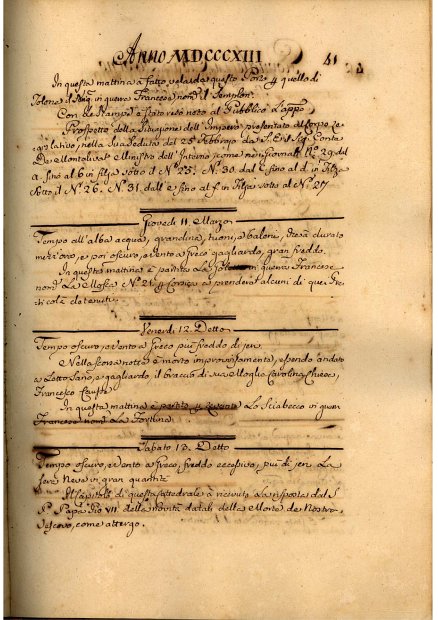 Anno MDCCCXIII 41
In questa mattina a fatto vela da questo Porto p quello di
Tolone il Brig in guerra Francese nom.º il Templon.
Con le Stampe è stato reso noto al Pubblico l'appo
Prospetto della Situazione dell'Impero presentato al Corpo Le-
gislativo, nella sua seduta del 25 Febbrajo da S. Ecc. Sig. Conte
De Montalivet Ministro dell'Interno, come nei Giornali Nº 29. dal
a. fino al 6 in filza sotto il Nº 25. Nº 30. dal è fino al d. in filza
sotto il Nº 26. Nº 31. dall'e fino al f in filza sotto al Nº 27
Giovedi 11. Marzo
Tempo all'alba acqua, grandina, tuoni, e baleni, che à durato
mezz'ora, e poi oscuro, e vento a Greco gagliardo, gran freddo.
In questa mattina è partita la in guerra Francese
nom.ª La Mosca Nº 21. p Corsica a prendere alcuni di quei Pre-
ti colà detenuti.
Venerdi 12. Detto
Tempo oscuro, e vento a Greco più freddo di jeri.
Nella scorsa notte è morto improvvisamente, essendo andato
a Letto sano, e gagliardo, il braccio di sua Moglie Carolina
Francesco
In questa mattina è partito p Levante Lo Sciabecco in guerra
Francese nom.º La Fortuna
Sabato 13. Detto
Tempo oscuro, e vento a Greco, freddo eccessivo, più di jeri. La
sera Neve in gran quantità
Il Capitolo di questa Cattedrale à ricevuto la risposta dal S.
P. Papa Pio VII. della notizia datali della Morte de Nostro
Vescovo, come attergo.